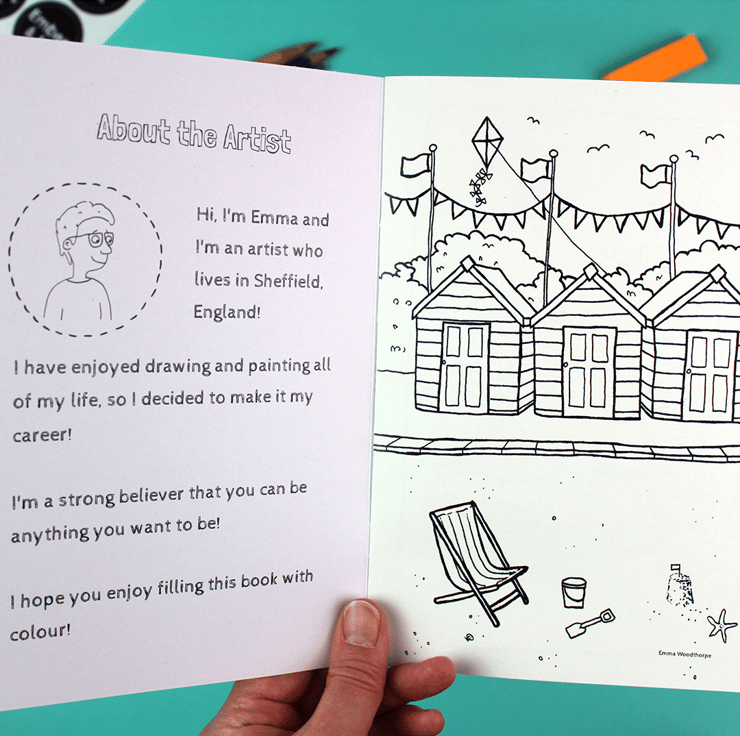 About the Artist
Hi, I'm Emma and
I'm an artist who
lives in Sheffield,
England!
I have enjoyed drawing and painting all
of my life, so I decided to make it my
career!
I'm a strong believer that you can be
anything you want to be!
I hope you enjoy filling this book with
colour!
Emma Woodthorpe